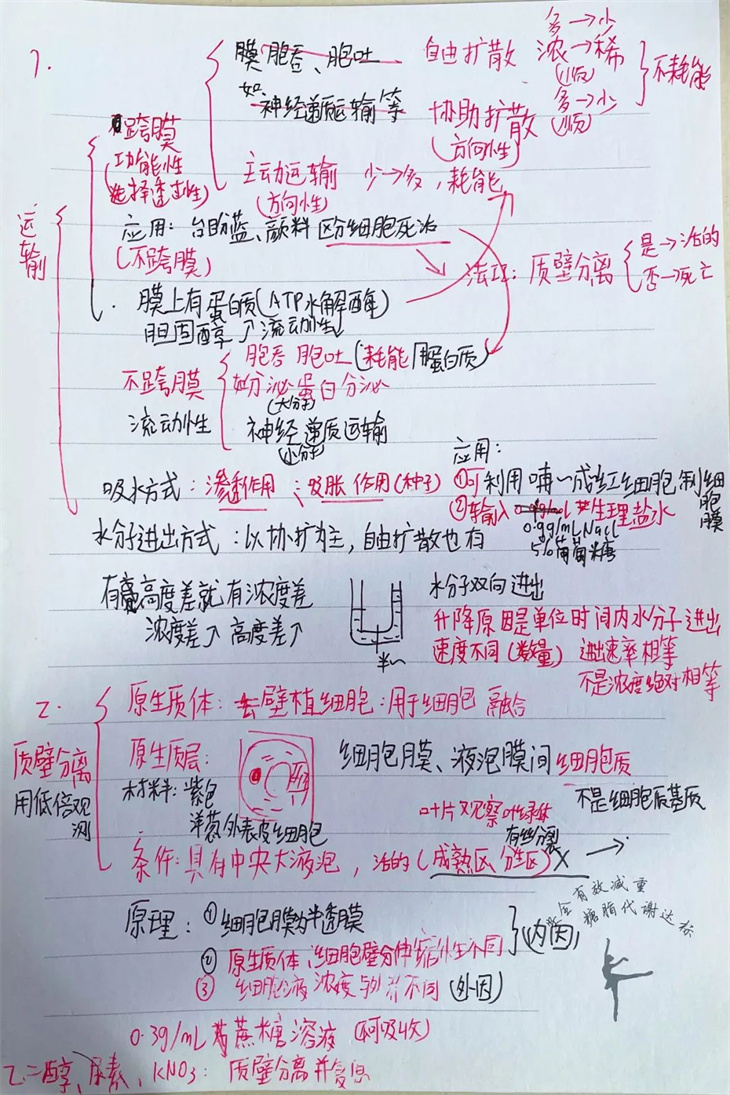 多→少
膜 胞吞、胞吐 自由扩散 浓→稀 不耗能
1. (顺)
如 神经递质运输等 协助扩散 多→少
(方向性) (顺)
跨膜
(功能性
选择透过性)
主动运输 少→多,耗能
(方向性)
运输
应用:台盼蓝、颜料 区分细胞死活
(不跨膜)
法二:质壁分离 是→活的
否→死亡
膜上有蛋白质(ATP水解酶)
胆固醇↗流动性
胞吞 胞吐(耗能 膜蛋白质)
不跨膜 如分泌蛋白分泌
(大分子)
流动性 神经递质运输
(小分子)
应用:
吸水方式:渗透作用;吸胀作用(种子) ①可利用哺~成红细胞制细胞膜
②输入 生理盐水
0.9g/mLNacl
5%葡萄糖
水分子进出方式:以协扩为主,自由扩散也有
有高度差就有浓度差
浓度差↗高度差↗
半~
水分子双向进出
升降原因是单位时间内水分子进出
速度不同(数量) 进出速率相等
不是浓度绝对相等
2. 原生质体:去壁植细胞:用于细胞 融合
质壁分离
用低倍观测
原生质层: 细胞膜、液泡膜间细胞质
不是细胞质基质
材料:紫色
洋葱外表皮细胞
叶片观察叶绿体
有丝分裂
条件:具有中央大液泡,活的(成熟区 分生区)X →
有效减重
糖脂代谢达标
原理:①细胞膜为半透膜
②原生质体、细胞壁分伸缩性不同 (内因)
③细胞液浓度与外界不同 (外因)
0.3g/mL 蔗糖溶液 (不可吸收)
乙二醇、尿素、KNO3:质壁分离并复原